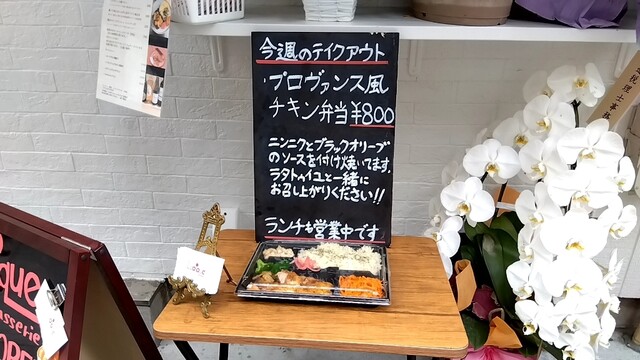 今週のテイクアウト
・プロヴァンス風
チキン弁当¥800
ニンニクとブラックオリーブ
のソースを付け焼いてます。
ラタトゥイユと一緒に
お召し上がりください!!
ランチも営業中です
税理士事務
que
asserie